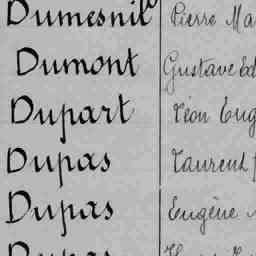 Dumesnil Pierre Ma
Dumont Gustave Ed
Dupart Léon Eug
Dupas Laurent
Dupas Eugène
Dupas